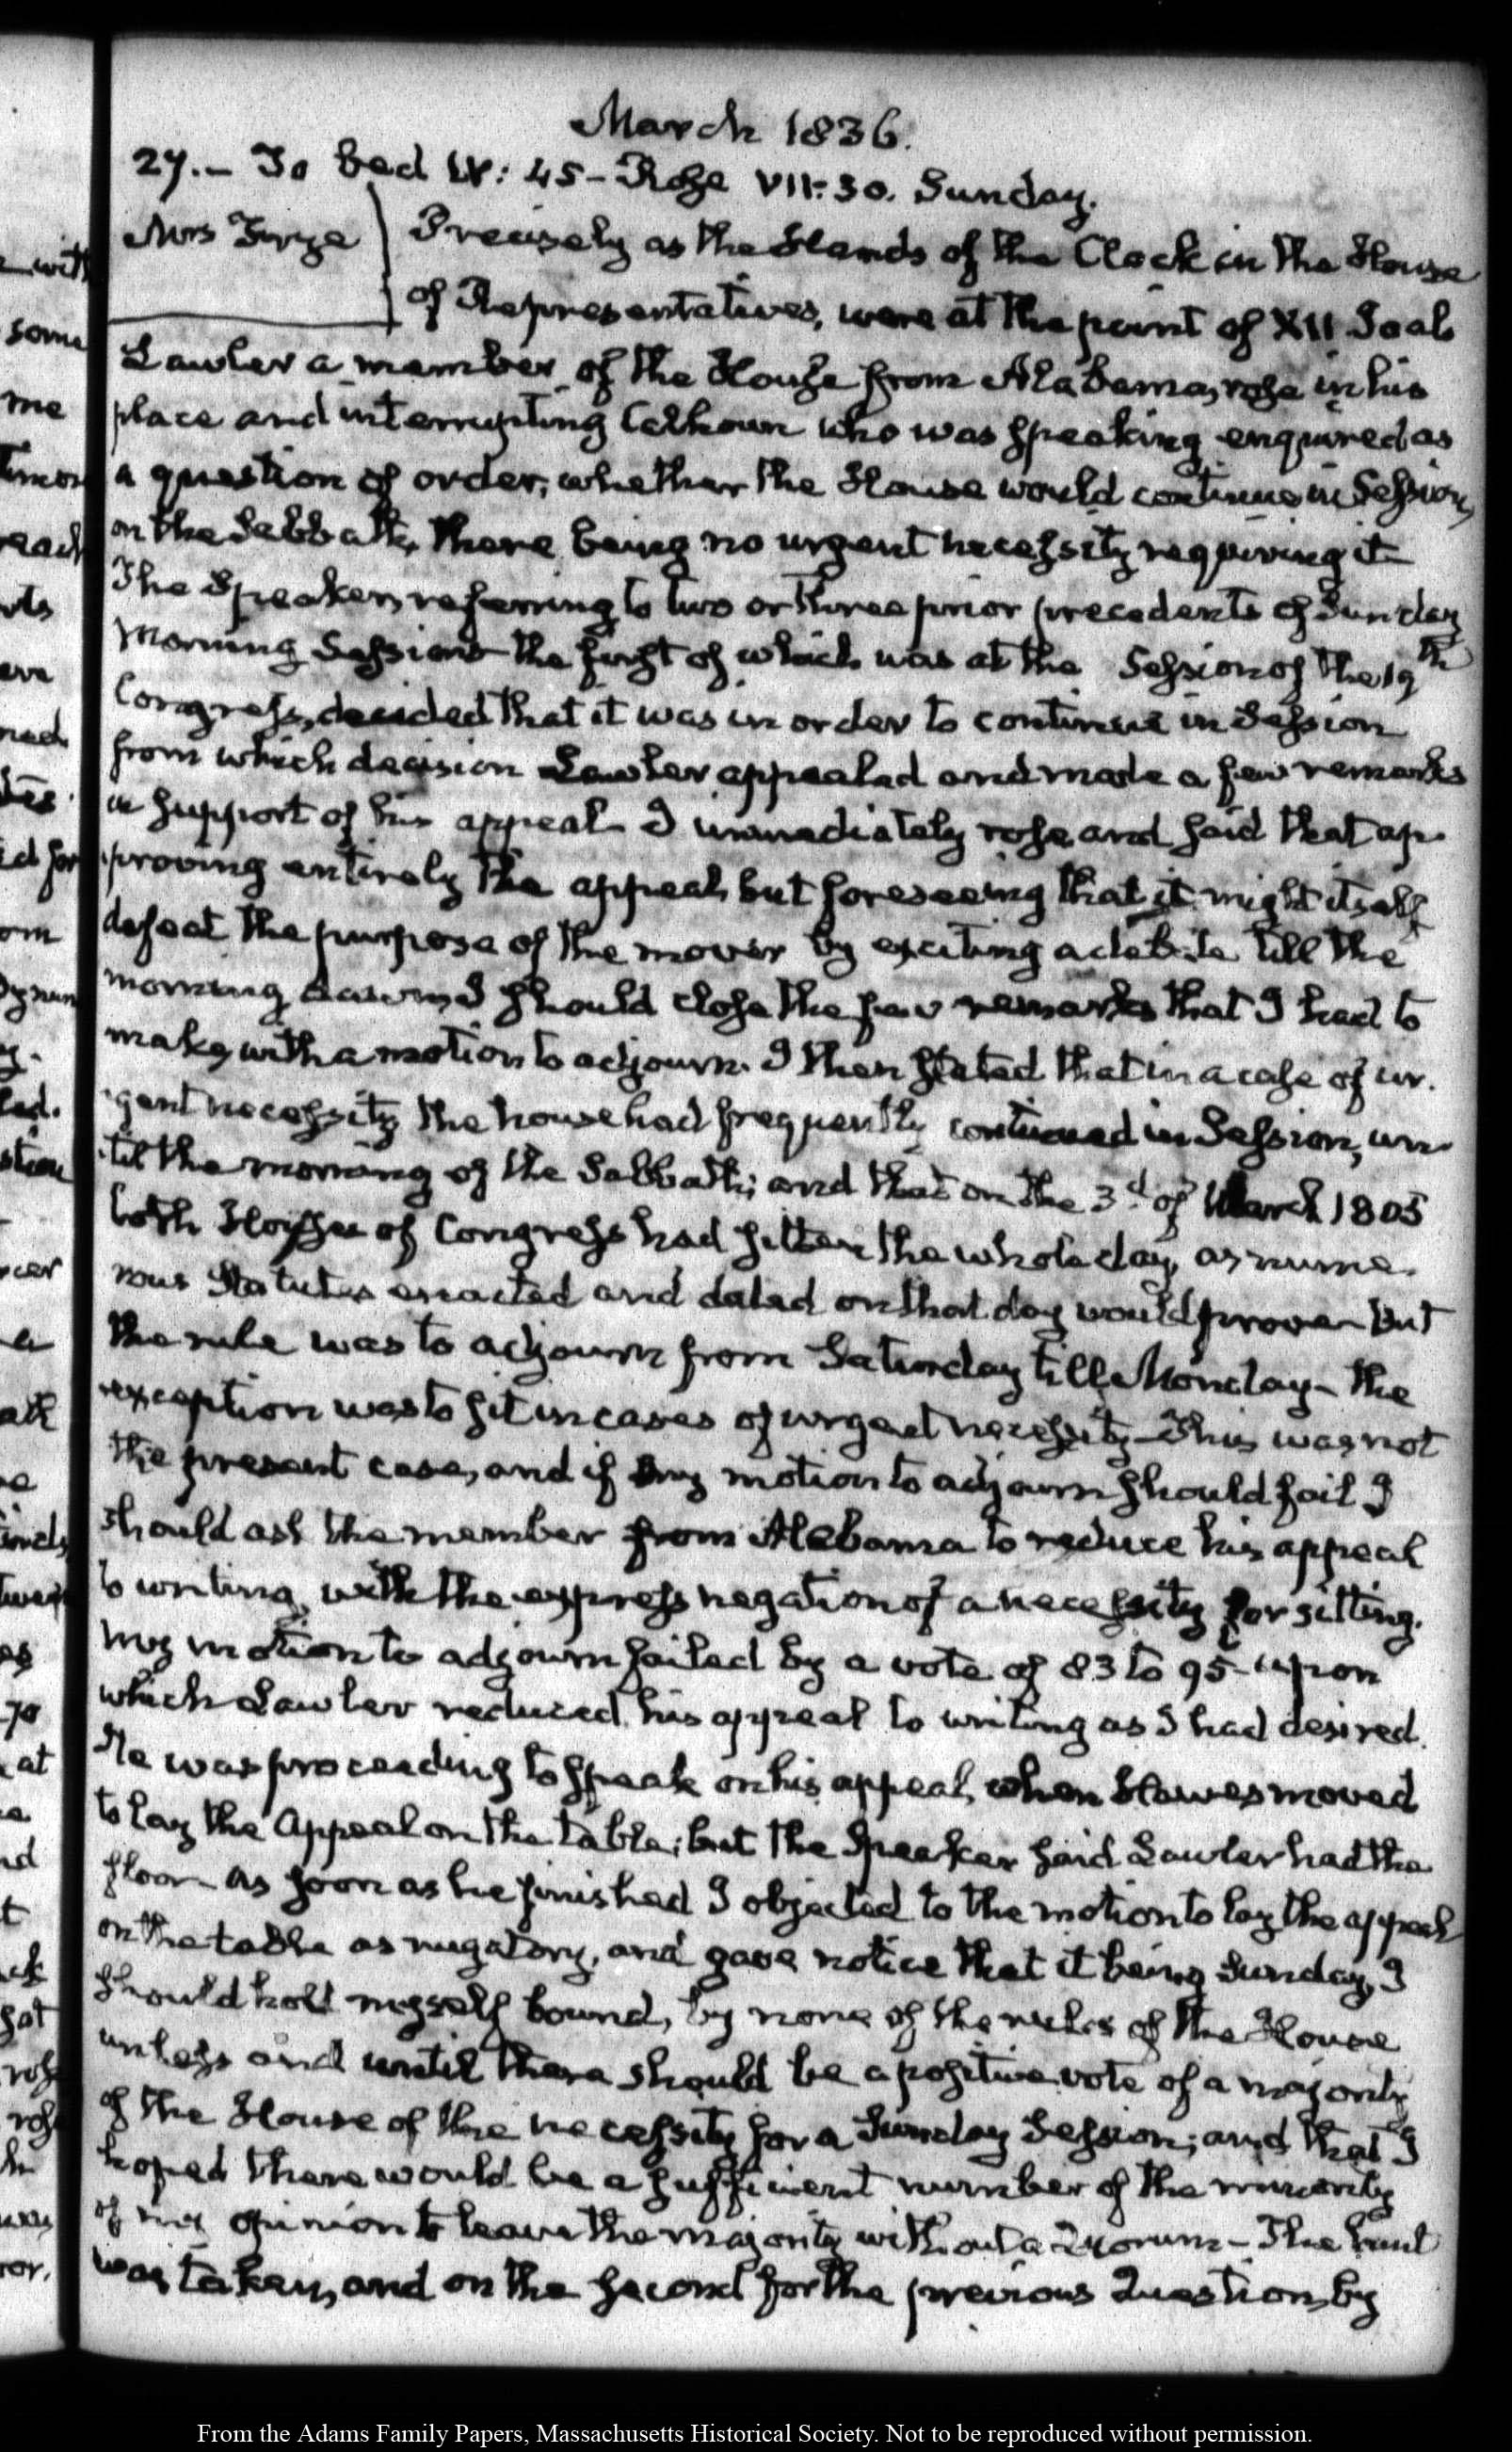 March 1836.
27.– To bed IV: 45 – Rose VII: 30. Sunday.
Mrs Frye
Precisely as the Hands of the Clock in the House
of Representatives, were at the point of XII Joab
Lawler a member of the House from Alabama, rose in his
place and interrupting Calhoun who was speaking enquired as
a question of order, whether the House would continue in Session,
on the Sabbath, there being no urgent necessity requiring it
The Speaker, referring to two or three prior precedents of Sunday
Morning Sessions the first of which was at the Session of the 19th
Congress, decided that it was in order to continue in Session
from which decision Lawler appealed and made a few remarks
in support of his appeal. I immediately rose, and said that ap-
proving entirely the appeal, but foreseeing that it might itself
defeat the purpose of the mover by exciting a debate till the
morning dawn, I should close the few remarks that I had to
make, with a motion to adjourn. I then stated that in a case of ur-
gent necessity the house had frequently continued in Session, un-
til the morning of the Sabbath; and that on the 3d of March 1805
both Houses of Congress had sitten the whole day, as nume-
rous Statutes enacted and dated on that day would prove – but
the rule was to adjourn from Saturday till Monday – the
exception was to sit in cases of urgent necessity – This was not
the present case, and if my motion to adjourn should fail I
should ask the member from Alabama to reduce his appeal
to writing, with the express negation of a necessity for sitting.
My motion to adjourn failed by a vote of 83 to 95 – upon
which Lawler reduced his appeal to writing as I had desired.
He was proceeding to speak on his appeal, when Hawes moved
to lay the Appeal on the table; but the Speaker said Lawler had the
floor – as soon as he finished I objected to the motion to lay the appeal
on the table as nugatory, and gave notice that it being Sunday, I
should hold myself bound, by none of the rules of the House
unless and until there should be a positive vote of a majority
of the House of the necessity for a Sunday Session; and that I
hoped there would be a sufficient number of the minority
of my opinion to leave the majority without a Quorum – The hint
was taken, and on the second for the previous Question, by
From the Adams Family Papers, Massachusetts Historical Society. Not to be reproduced without permission.